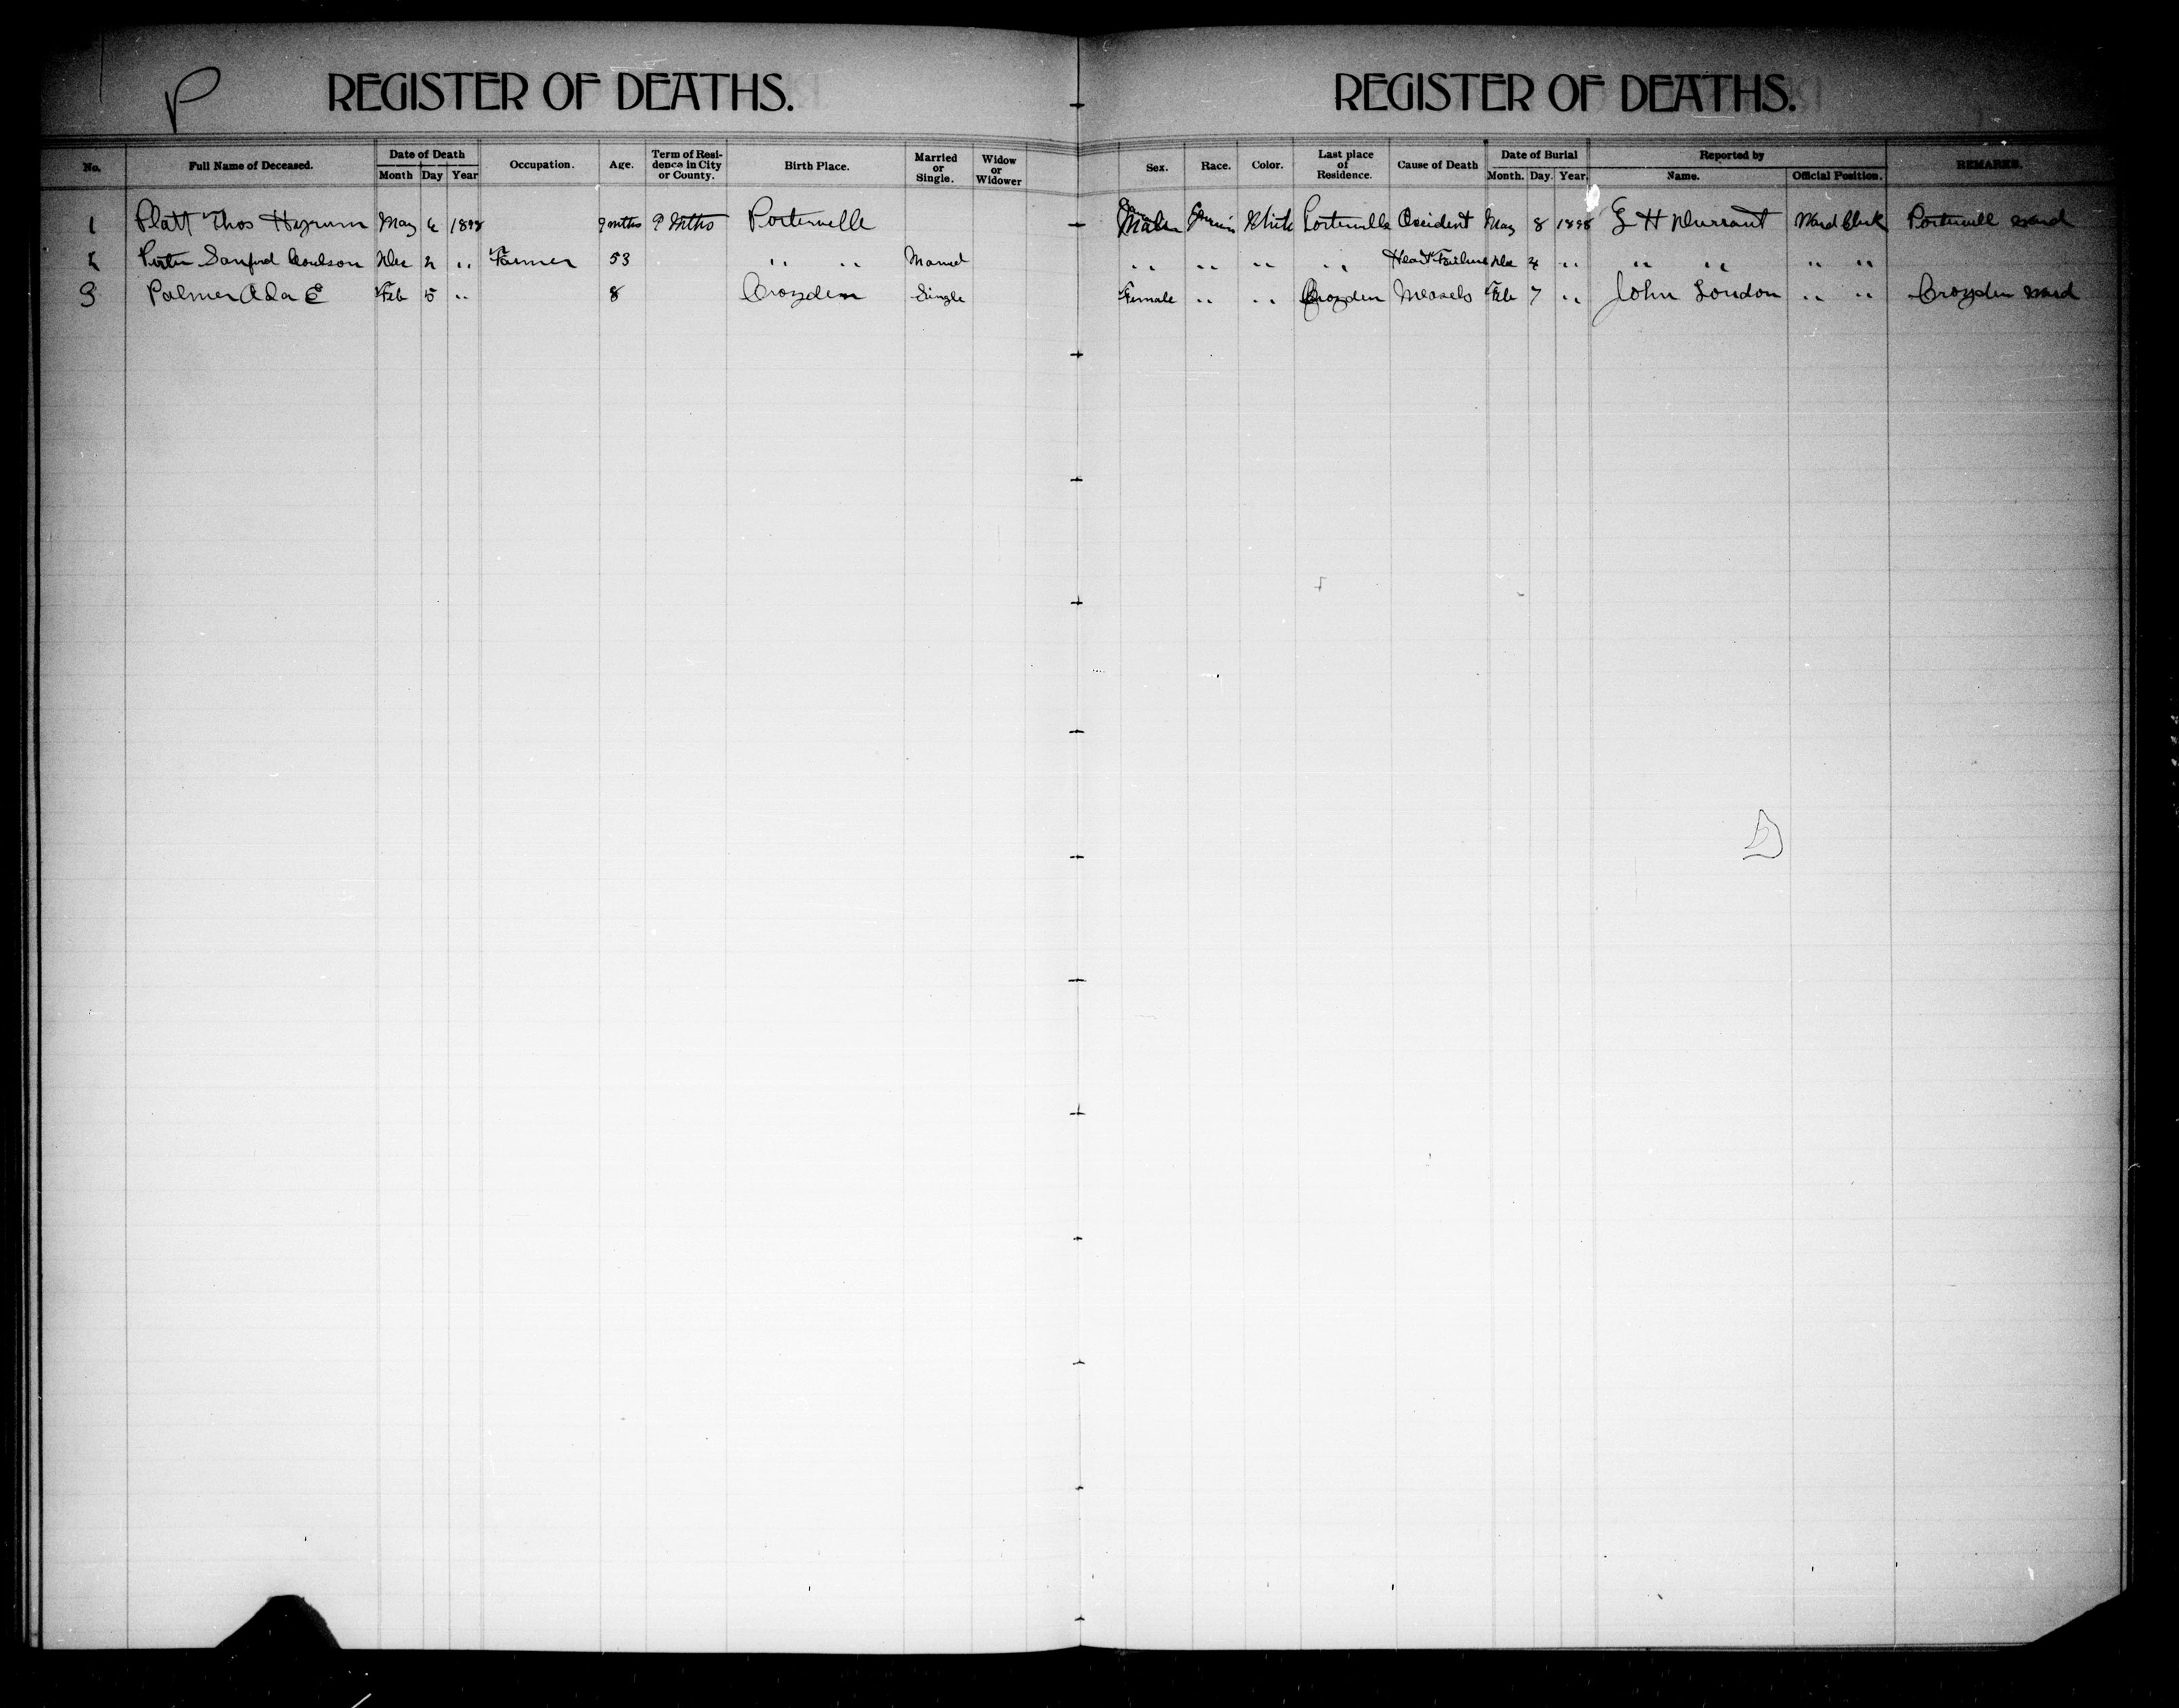 P
REGISTER OF DEATHS. REGISTER OF DEATHS.
No. Full Name of Deceased. Date of Death Month Day Year Occupation. Age. Term of Residence in City or County. Birth Place. Married or Single. Widow or Widower Sex. Race. Color. Last place of Residence. Cause of Death Date of Burial Month. Day. Year. Reported by Name. Official Position. REMARKS.
1 Platt Thos Hyrum May 6 1898 9 mths 9 Mths Porterville Male White Porterville Accident May 8 1898 H Durrant Ward Clerk Porterville Ward
2 Porter Sanford Coulson Dec 2 " Farmer 53 " " Married " " " " Heart Failure Dec 4 " " " " "
3 Palmer Ada E Feb 5 " 8 Croyden Single Female " " Croyden Measels Feb 7 " John London " " Croyden Ward